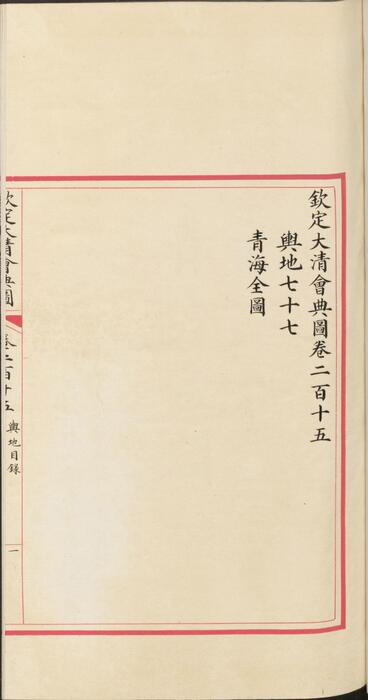 欽定大清會典圖卷二百十五
輿地七十七
青海全圖
欽定大清會典圖
卷二百十五
輿地目錄
一